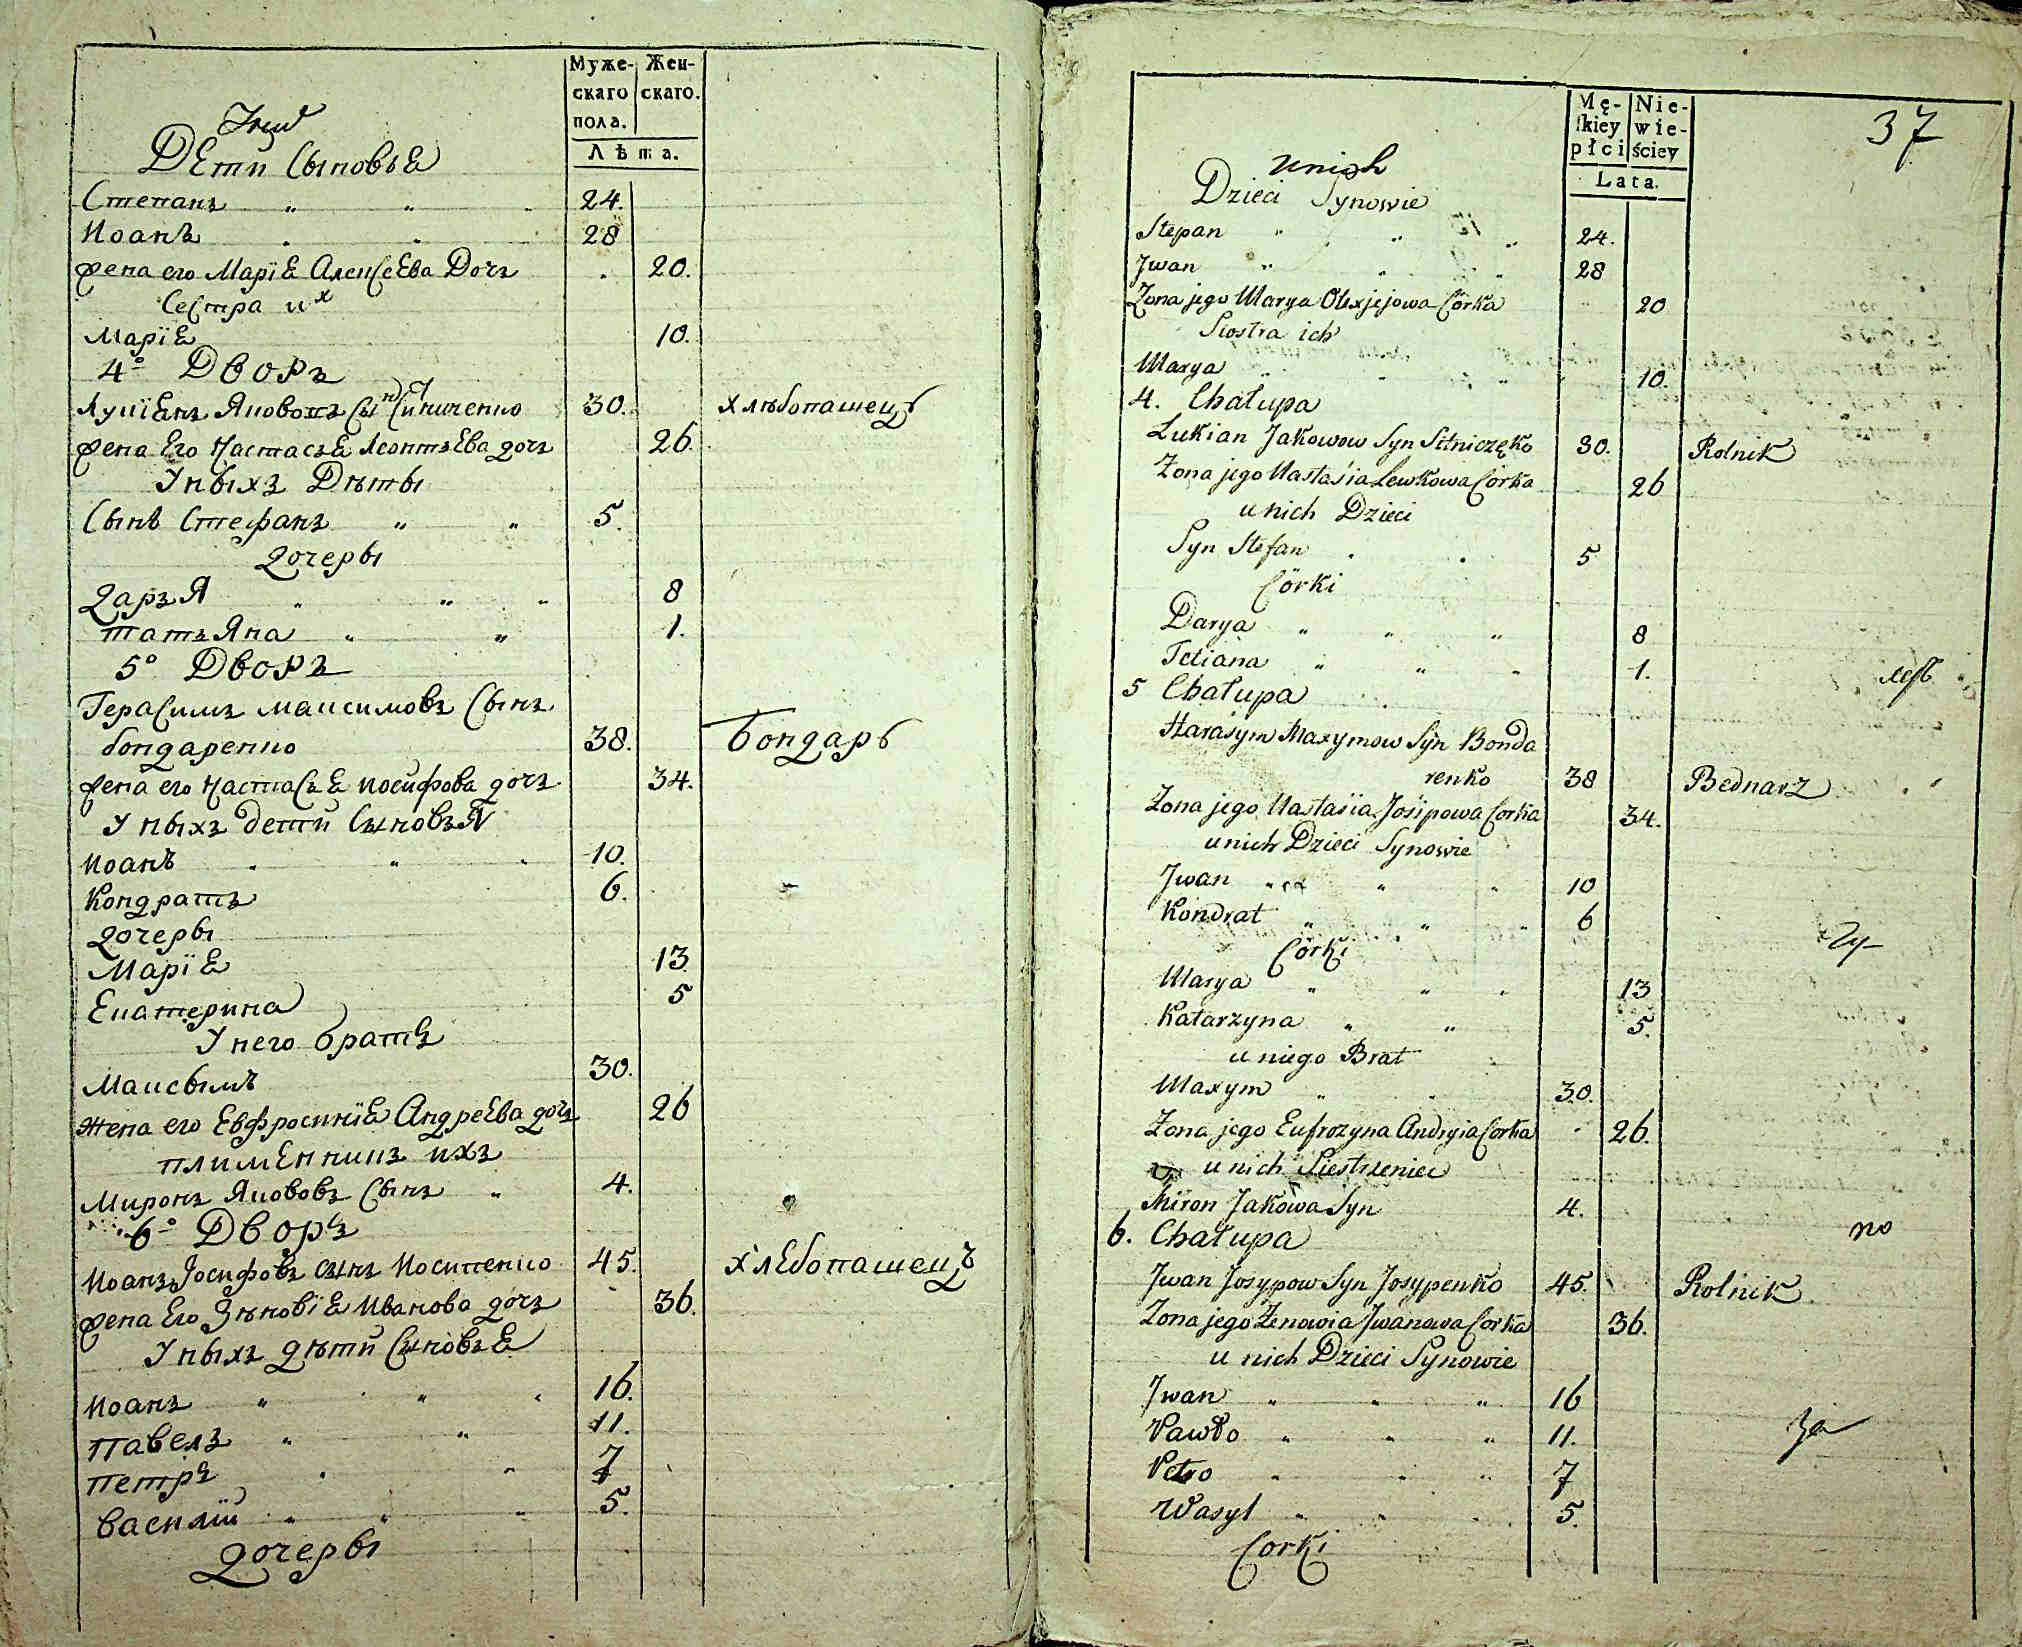 Муже- Жен-
скаго скаго.
пола.
Лѣта.
Дети Сыновьѣ
Степанъ " " 24.
Иоанъ " " 28
жена его Маріѣ Алексѣева Дочъ . 20.
Сестра их
Маріѣ 10.
4º Дворъ
Лукіѣнъ Якововъ Сын 30. хлѣбопашецъ
жена Его Настасъѣ Леонтъева дочъ 26.
Унихъ Дѣты
Сынъ Стефанъ " " 5.
Дочеры
ДаръЯ " " " 8
татъЯна " " 1.
5º Дворъ
Герасимъ максимовъ Сынъ
бондаренко 38. бондарь
жена его настасъѣ иосифова дочъ 34.
Уныхъ дети СыновъЯ
Иоанъ " " 10.
Кондратъ 6.
Дочеры
Маріѣ 13
Екатерина 5
Унего братъ
Максымъ 30.
жена его Евфросиніѣ Андрѣева дочъ 26
племѣнникъ ихъ
Миронъ Якововъ Сынъ " 4.
6º Дворъ
Иоанъ Иосифовъ сынъ Иосипенко 45. хлѣбопашецъ
жена Его Зѣновіѣ Иванова дочъ 36.
Уныхъ дѣти Сыновъѣ
Иоанъ " " " 16.
павелъ " " 11.
петръ " " 7
василій " " " 5.
Дочеры
Mę- Nie-
skiey wie-
płci ściey
Lata.
37
Unich
Dzieci Synowie
Stepan " " " 24.
Jwan " " " 28
Żona jego Marya Olexjejowa Córka 20
Siostra ich
Marya " " " 10.
4. Chałupa
Lukian Jakowow Syn Sitniczęko 30. Rolnik
Żona jego Nastasia Lewkowa Córka 26
unich Dzieci
Syn Stefan . . 5
Córki
Darya " " " 8
Tetiana " " " 1.
5 Chałupa
Harasym Maxymow Syn Bonda
renko 38 Bednarz
Żona jego Nastasiia Josipowa Corka 34.
unich Dzieci Synowie
Jwan " " " 10
Kondrat " " " 6
Córki
Marya " " " 13
Katarzyna " " 5.
u niego Brat
Maxym " " 30.
Żona jego Eufrozyna Andryia Corka 26.
u nich Siestrzeniec
Miron Jakowa Syn 4.
6. Chałupa
no
Jwan Josypow Syn Josypenko 45. Rolnik
Żona jego Zenowia Jwanowa Corka 36.
u nich Dzieci Synowie
Jwan " " " 16
Pawło " " " 11.
за
Petro " " " 7
Wasyl " " " 5.
Corki